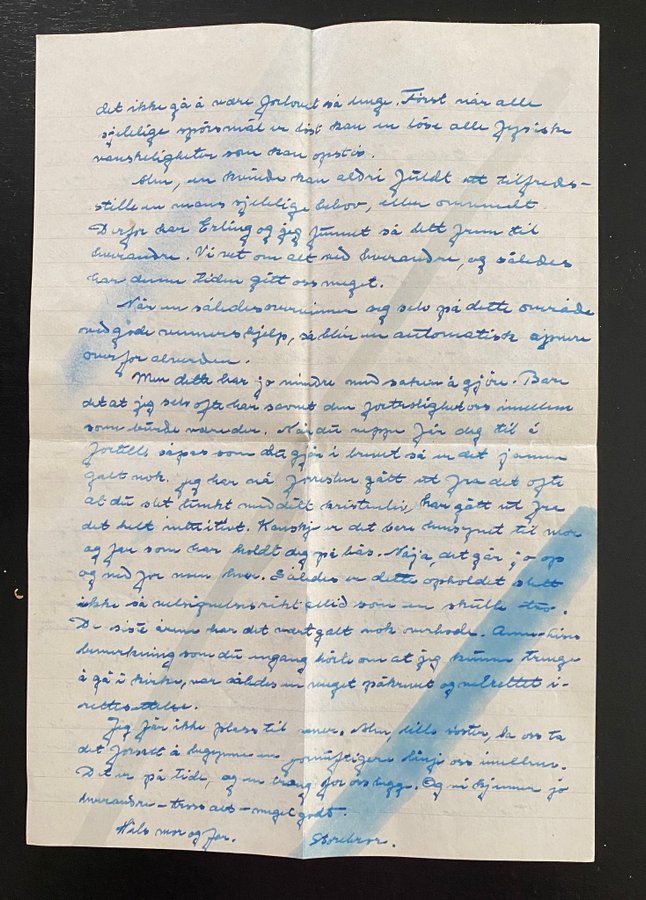 det ikke gå å være forlovet så lenge. Først når alle
sjelelige spörsmål er löst kan en löse alle fysiske
vanskeligheter som kan opstå.
Men, en kvinde kan aldri fuldt ut tilfreds-
stille en mans sjelelige behov, eller omvendt
Derfor har Erling og jeg funnet så lett frem til
hverandre. Vi vet om alt ved hverandre, og således
har denne tiden gitt oss meget.
Når en således overvinner sig selv på dette område
ved gode venners hjelp, så blir en automatisk åpnere
overfor alverden.
Men dette har jo mindre med saken å gjöre. Bare
det at jeg selv ofte har savnet den fortrolighet oss imellem
som burde være der. Når du neppe får dig til å
fortelle såpas som du gjör i brevet så er det jammen
galt nok. Jeg har nå forresten gått ut fra det ofte
at du slet tungt med ditt kristenliv, har gått ut fra
det helt intuitivt. Kanskje er det bare hensynet til mor
og far som har holdt dig på bås. Nåja, det går jo op
og ned for noen hver. Således er dette opholdet slett
ikke så velsignelsesrikt alltid som en skulle tro.
De siste årene har det vært galt nok overhode.
bemerkning som du engang hörte om at jeg kunne trenge
å gå i kirke, var således en meget påkrevet og velrettet i-
rettesettelse.
Jeg får ikke plass til mer. Men, lille söster, la oss ta
det forsett å begynne en fornuftigere linje oss imellem.
Det er på tide, og en trang for oss begge. Og vi kjenner jo
hverandre - tross alt - meget godt.
Hils mor og far. Storebror.